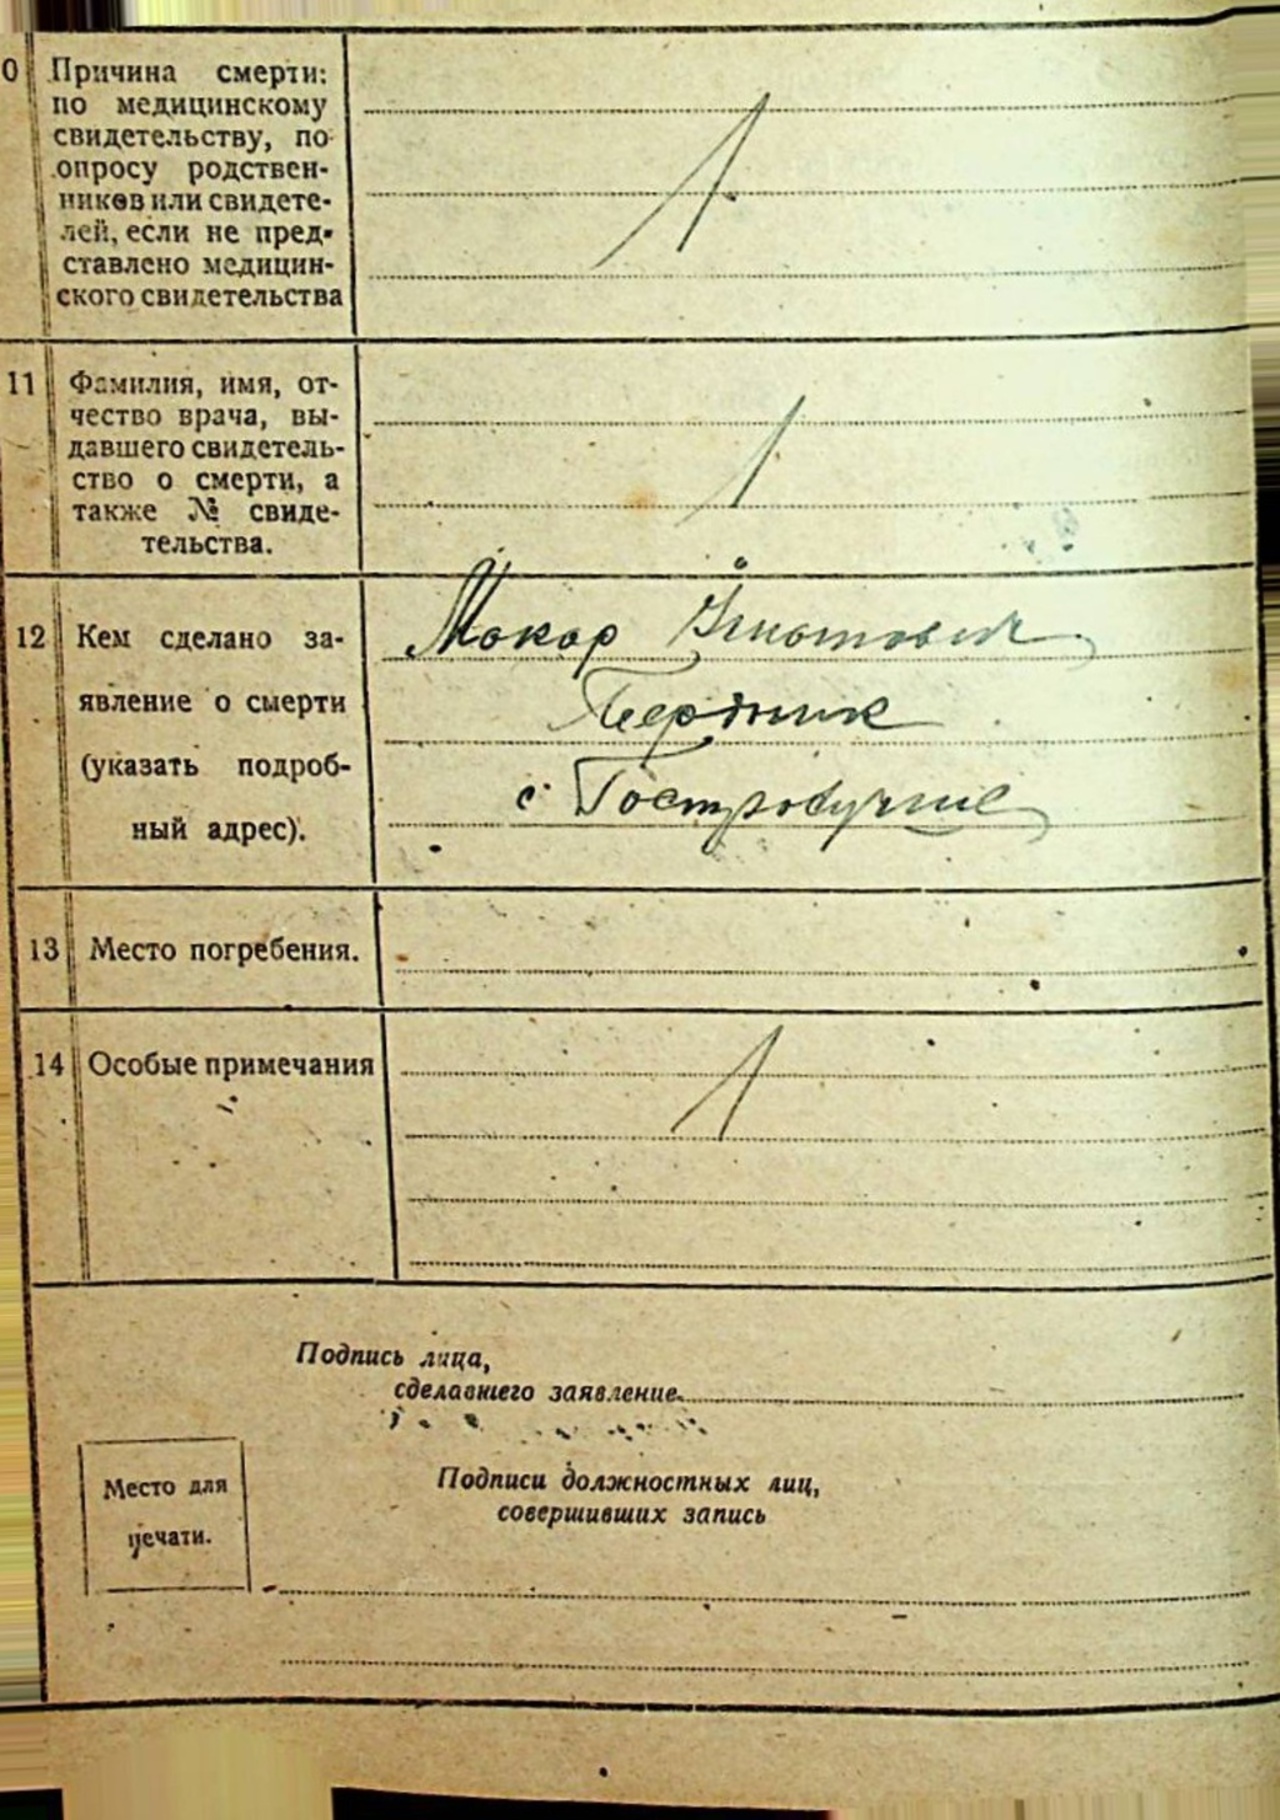 0 Причина смерти:
по медицинскому
свидетельству, по
опросу родствен-
ников или свидете-
лей, если не пред-
ставлено медицин-
ского свидетельства
11 Фамилия, имя, от-
чество врача, вы-
давшего свидетель-
ство о смерти, а
также № свиде-
тельства.
12 Кем сделано за-
явление о смерти
(указать подроб-
ный адрес).
Макар Игнатович
Бердник
с
13 Место погребения.
14 Особые примечания
Подпись лица,
сделавшего заявление
Подписи должностных лиц,
совершивших запись
Место для
печати.